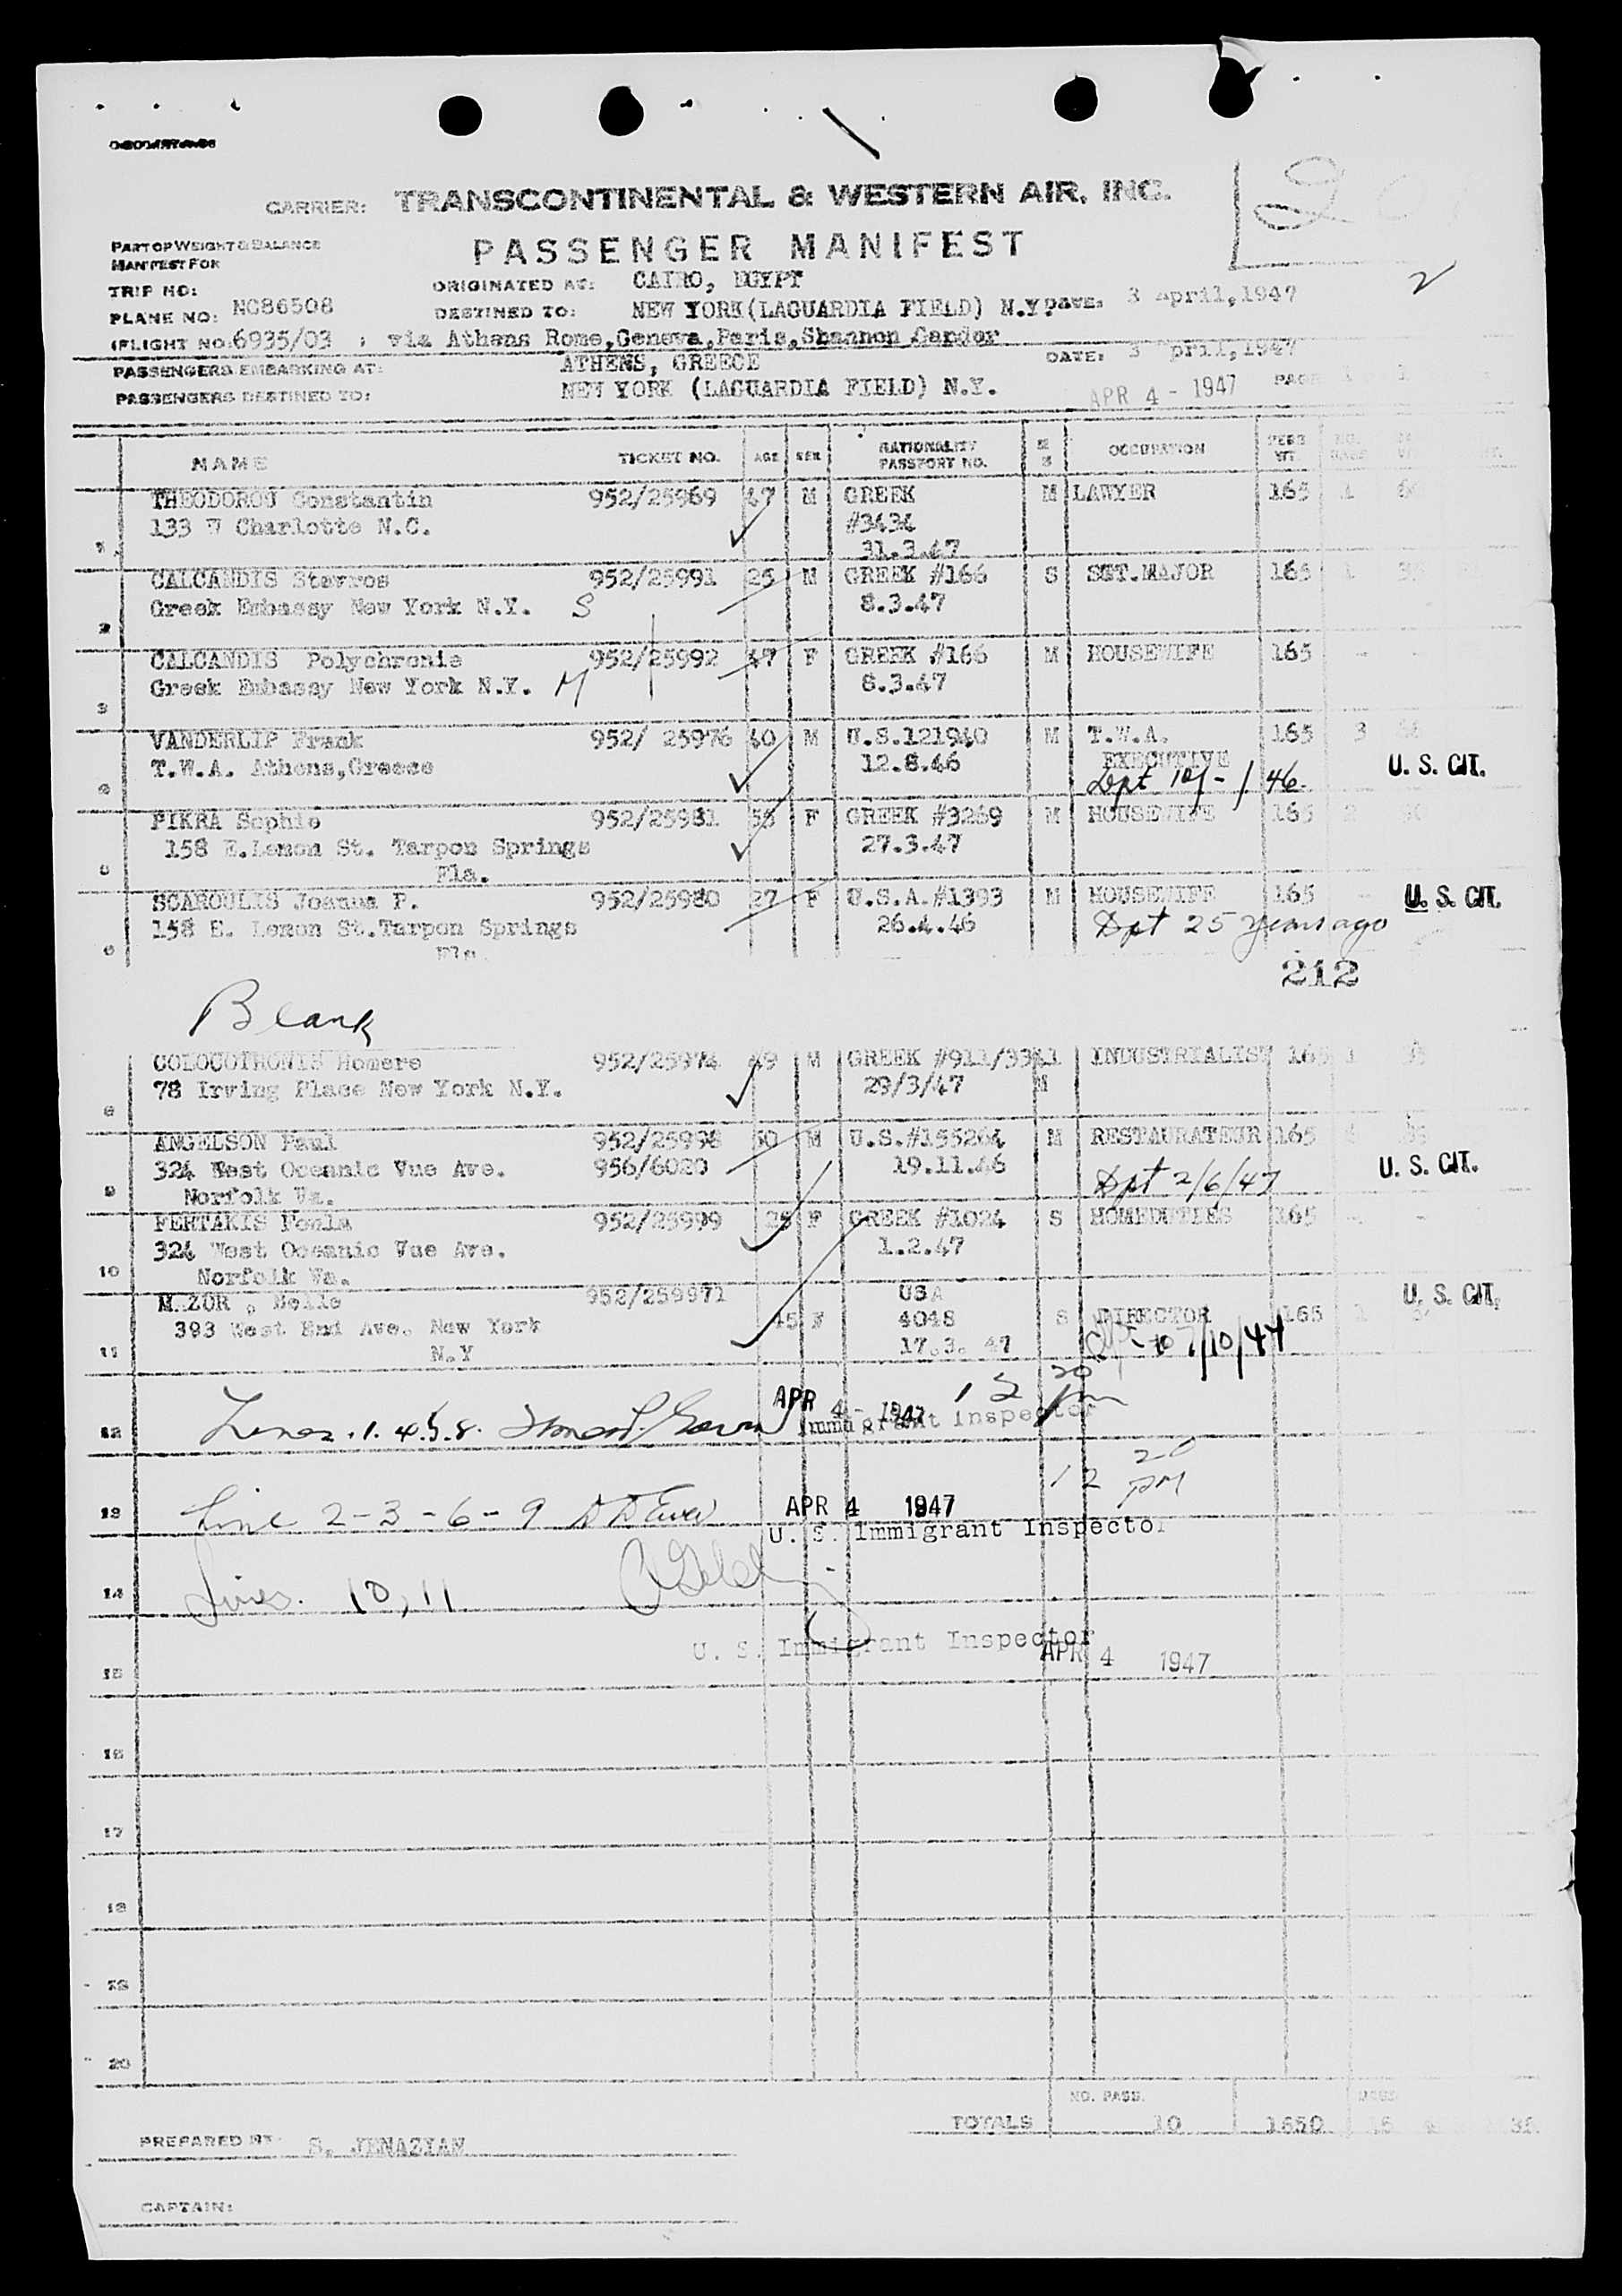 CARRIER: TRANSCONTINENTAL & WESTERN AIR, INC.
PART OF WEIGHT & BALANCE
MANIFEST FOR
PASSENGER MANIFEST
2
TRIP NO:
ORIGINATED AT: CAIRO, EGYPT
PLANE NO: NC86508
DESTINED TO: NEW YORK(LAGUARDIA FIELD) N.Y. DATE: 3 April,1947
FLIGHT NO. 6935/03 : via Athens Rome,Geneva,Paris,Shannon Gander
PASSENGERS EMBARKING AT: ATHENS, GREECE DATE: 3 pril,1947
PASSENGERS DESTINED TO: NEW YORK (LAGUARDIA FIELD) N.Y. APR 4 - 1947 PAGE
NAME TICKET NO. AGE SEX NATIONALITY PASSPORT NO. M S OCCUPATION PERS WT
THEODOROU Constantin 952/25969 47 M GREEK M LAWYER 165 1
133 W Charlotte N.C. #3434
31.3.47
CALCANDIS Stavros 952/25991 25 M GREEK #166 S SGT.MAJOR 165 1
Greek Embassy New York N.Y. S 8.3.47
2
CALCANDIS Polychronie 952/25992 47 F GREEK #166 M HOUSEWIFE 165 - -
Greek Embassy New York N.Y. M 8.3.47
3
VANDERLIP Frank 952/ 25976 40 M U.S.121940 M T.W.A. 165 3
T.W.A. Athens,Greece 12.8.46 EXECUTIVE U. S. CIT.
Dpt 10/-/46.
PIKRA Sophie 952/25981 55 F GREEK #3269 M HOUSEWIFE 165 2
158 E.Lemon St. Tarpon Springs 27.3.47
Fla.
SCAROULIS Joanna P. 952/25980 27 F U.S.A.#1393 M HOUSEWIFE 165 - U. S. CIT.
158 E. Lemon St.Tarpon Springs 26.4.46 Dpt 25 years ago
Fla.
212
Blank
COLOCOTRONIS Homere 952/25974 49 M GREEK #911/3341 INDUSTRIALIST 165 1
78 Irving Place New York N.Y. 29/3/47 M
ANGELSON Paul 952/25998 50 M U.S.#155264 M RESTAURATEUR 165
324 West Oceanic Vue Ave. 956/6020 19.11.46 U. S. CIT.
9 Norfolk Va. Dpt 2/6/47
FERTAKIS Foula 952/25999 25 F GREEK #1024 S HOMEDUTIES 165 - -
324 West Oceanic Vue Ave. 1.2.47
10 Norfolk Va.
MAZOR , Belle 952/259971 USA U. S. CIT.
393 West End Ave. New York 45 F 4048 S DIRECTOR 165 1
11 N.Y 17.3. 47 7/10/47
12 Lines .1.4.5.8. APR 4 - 1947 12 20 pm
Immigrant Inspector
12 20 PM
13 Line 2-3-6-9 APR 4 1947
U. S. Immigrant Inspector
14 Lines. 10,11
U. S. Immigrant Inspector
15 APR 4 1947
16
17
18
19
20
NO. PASS.
TOTALS 10 1650
PREPARED BY S. JENAZIAN
CAPTAIN: